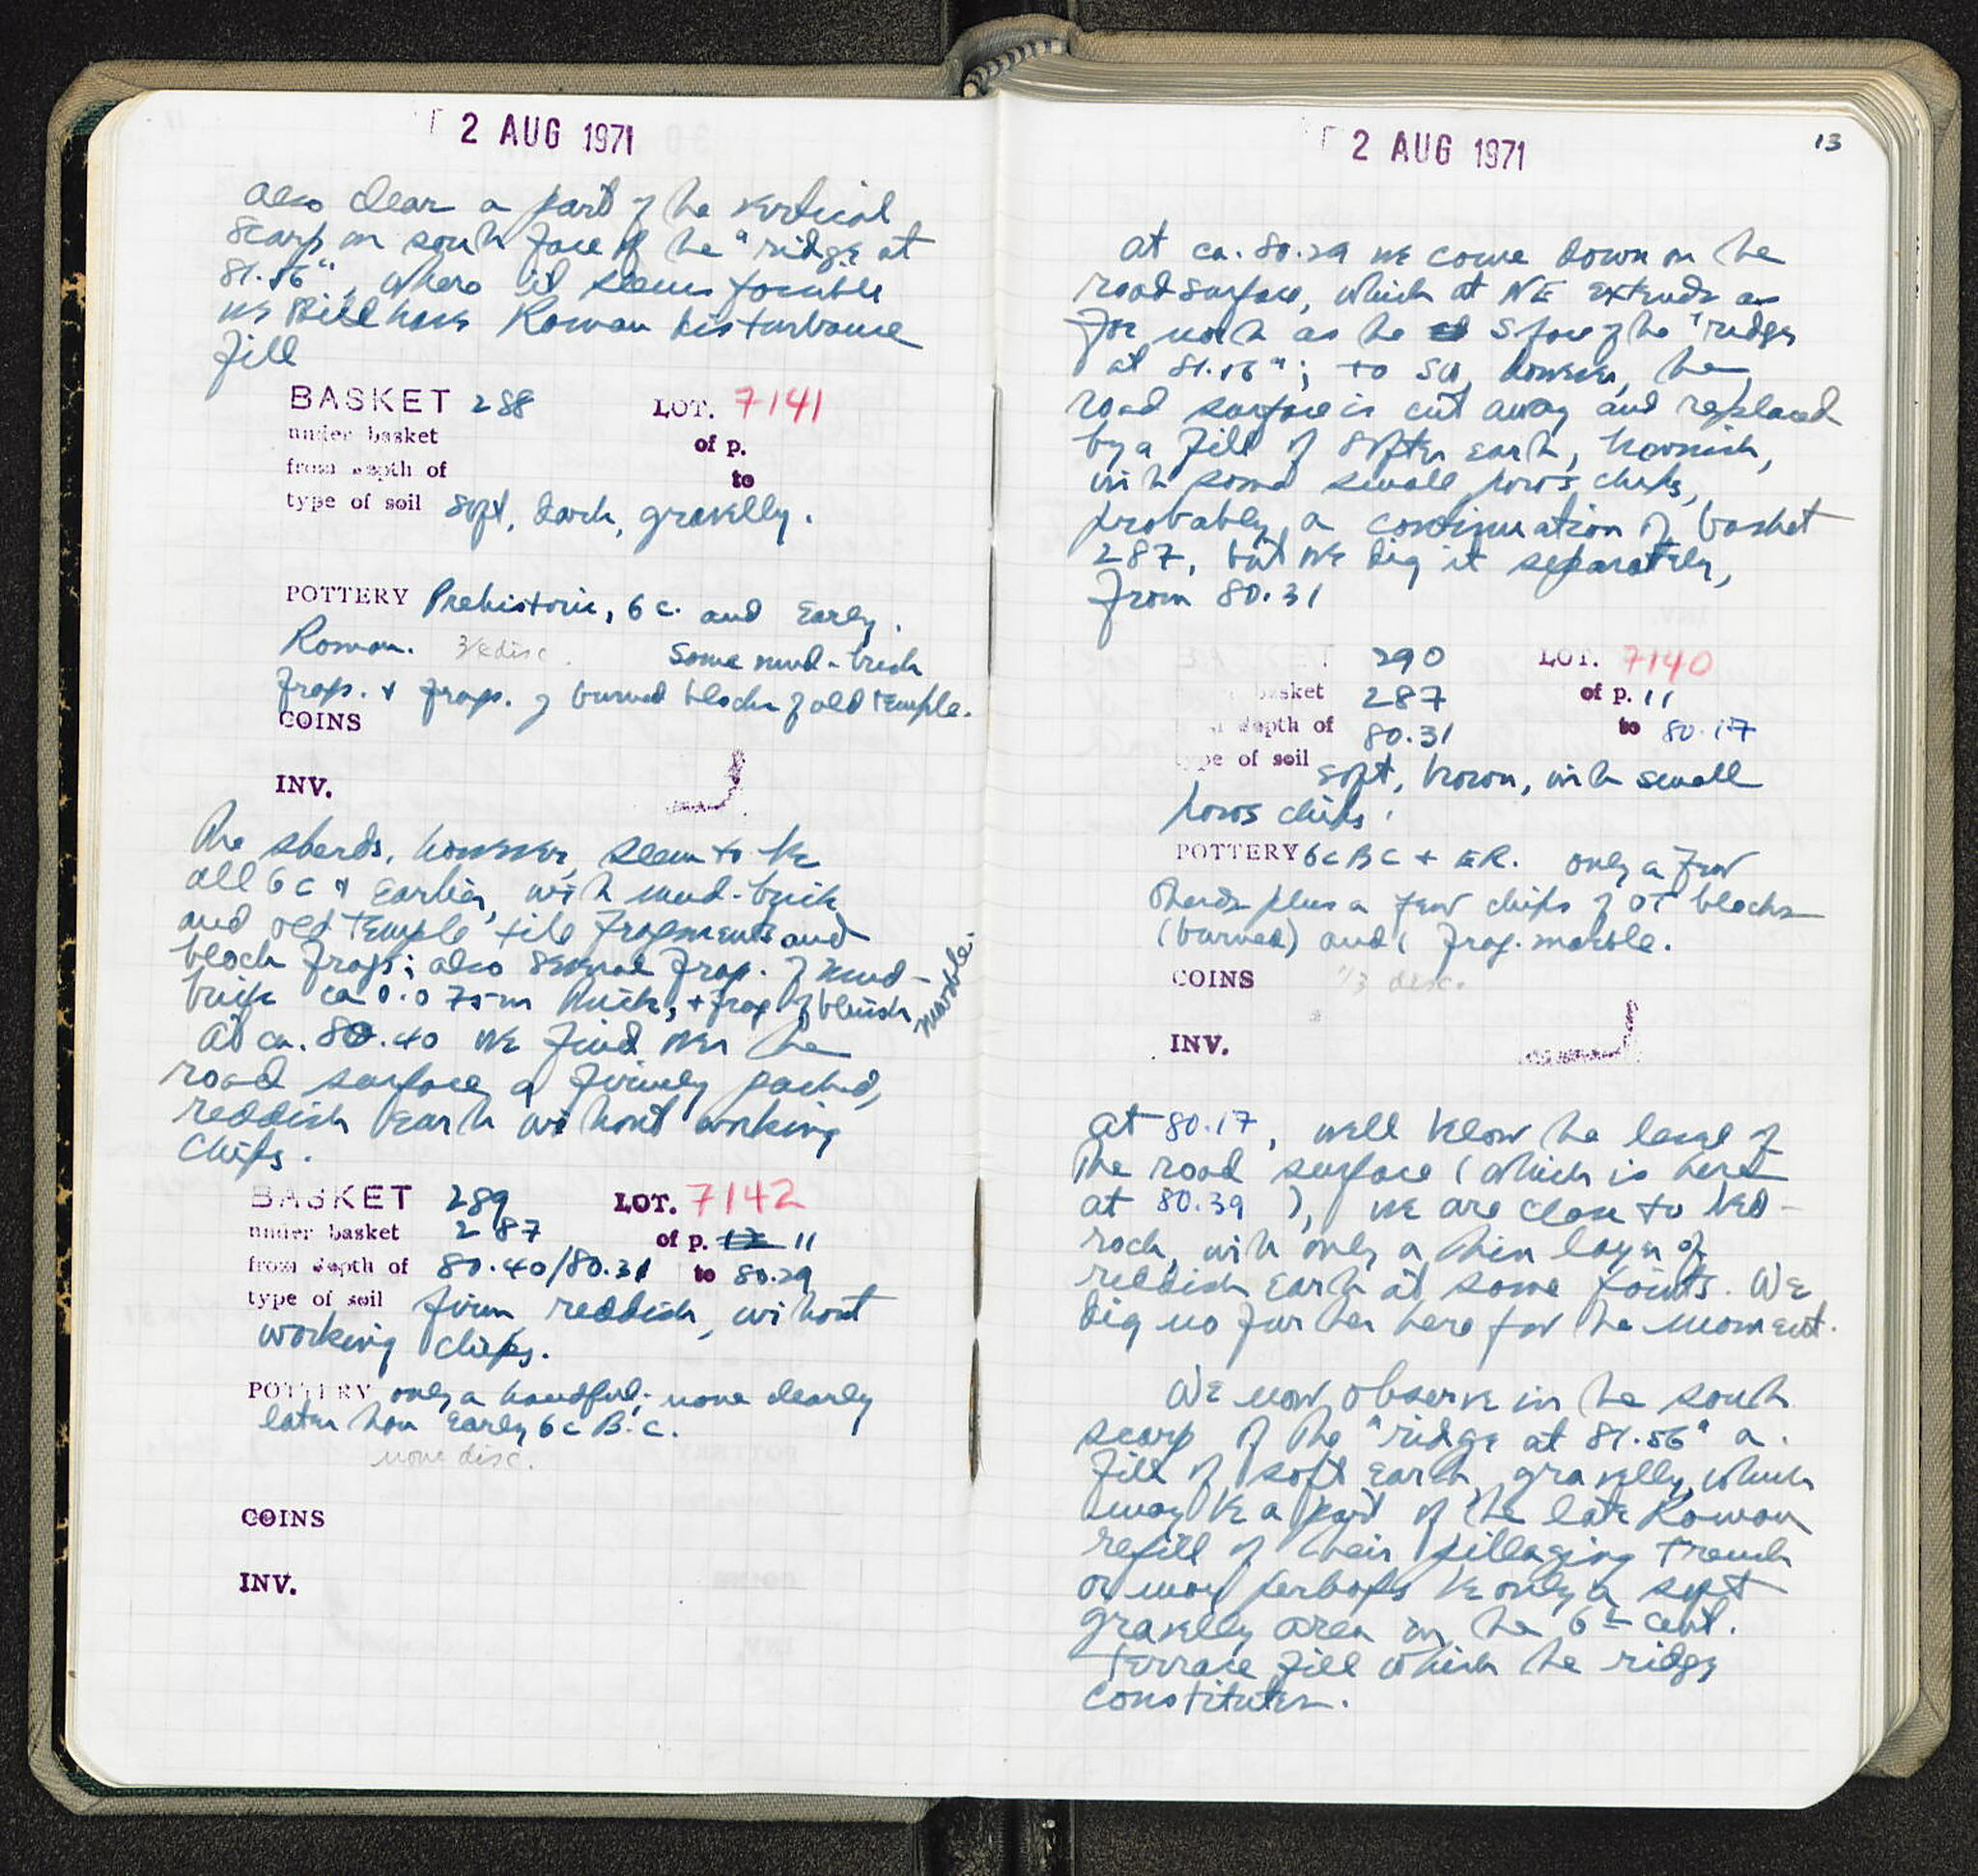 2 AUG 1971
also clear a part of the vertical
scarp on south face of the "ridge at
81.56", where it seems possible
we still have Roman disturbance
fill
BASKET 288 LOT. 7141
under basket of p.
from depth of to
type of soil soft, dark, gravelly.
POTTERY Prehistoric, 6 c. and Early
Roman. 3/4 disc. some mud-brick
frags. + frags. of burned blocks of old temple.
COINS
INV.
The sherds, however, seem to be
all 6 c & earlier, with mud-brick
and old temple tile fragments and
block frags; also several frag. of mud-
brick ca 0.075m thick, + frag of bluish marble.
At ca. 80.40 we find over the
road surface a firmly packed,
reddish earth without working
chips.
BASKET 289 LOT. 7142
under basket 287 of p. 11
from depth of 80.40/80.31 to 80.29
type of soil firm reddish, without
working chips.
POTTERY only a handful; none clearly
later than early 6 c B.C.
none disc.
COINS
INV.
2 AUG 1971
13
At ca. 80.29 we come down on the
road surface, which at NE extends as
far north as the S face of the "ridge
at 81.56"; to SW, however, the
road surface is cut away and replaced
by a fill of softer earth, brownish,
with some small poros chips,
probably a continuation of basket
287, but we dig it separately,
from 80.31
290 LOT. 7140
basket 287 of p. 11
depth of 80.31 to 80.17
type of soil soft, brown, with small
poros chips.
POTTERY 6 c BC + ER. only a few
sherds plus a few chips of OT blocks
(burned) and 1 frag. marble.
COINS 1/3 disc.
INV.
At 80.17, well below the level of
the road surface (which is here
at 80.39), we are close to bed-
rock, with only a thin layer of
reddish earth at some points. We
dig no further here for the moment.
We now observe in the south
scarp of the "ridge at 81.56" a
fill of soft earth, gravelly, which
may be a part of the late Roman
refill of their pillaging trench
or may perhaps be only a soft
gravelly area in the 6th cent.
terrace fill which the ridge
constitutes.